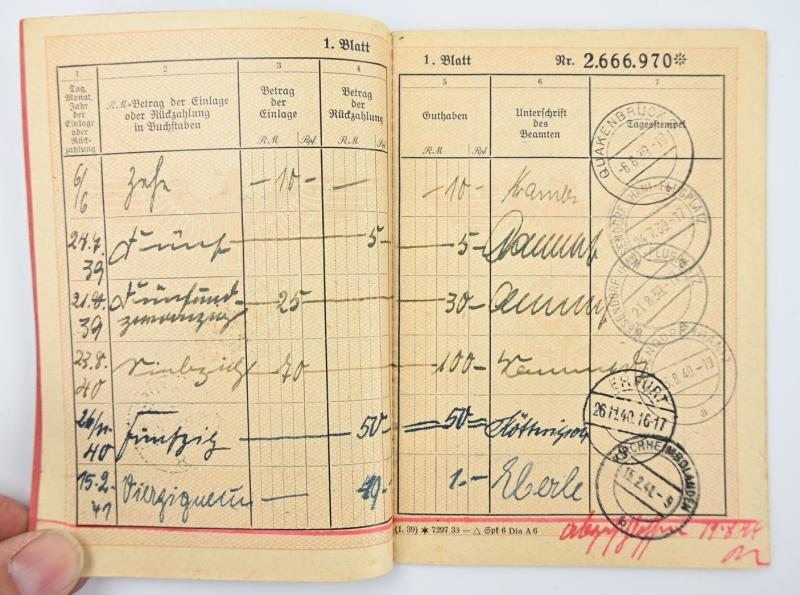 1. Blatt
1 2 3 4
Tag, Monat, Jahr der Einlage oder Rück-zahlung
R.M-Betrag der Einlage oder Rückzahlung in Buchstaben
Betrag der Einlage
Betrag der Rückzahlung
R.M Rpf R.M Rpf
6/6 Zehn — 10 — —
24.7. 39 Fünf 5
21.8. 39 Fünfund-
zwanzig 25
23.8. 40 Siebzig 70
26/11 40 Fünfzig 50
15.2. 41 Vierzigneun 49
1. Blatt Nr. 2.666.970*
5 6 7
Guthaben
Unterschrift des Beamten
Tagesstempel
R.M Rpf
10
5
30
100
50
1.— Eberle
QUAKENBRÜCK
-6.6.39
FLUGPLATZ
24.7.39-17
WESENDORF
21.8.39
.8.40-19
a
ERFURT
26.11.40.16-17
KIRCHHEIMBOLANDEN
15.2.41.-9
b
(1. 39) ✶ 7297 33 — △ Spf 6 Din A 6